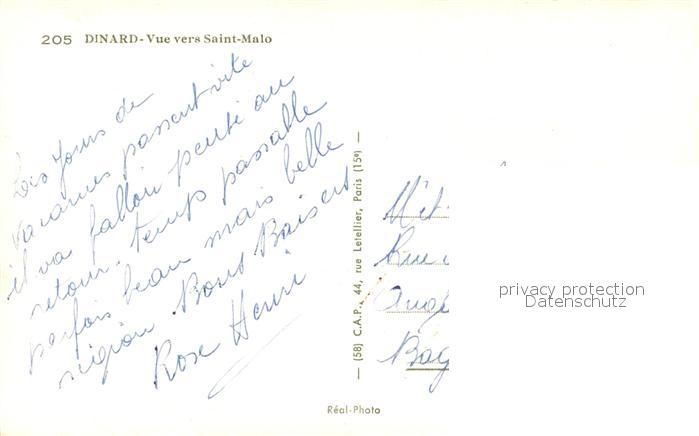 205 DINARD - Vue vers Saint-Malo
Les jours de
vacances passent vite
il va falloir pensé au
retour. temps passable
parfois beau mais belle
région Bons Baisers
Rose Henri
— (58) C.A.P., 44, rue Letellier, Paris (15e) —
Réal-Photo
Rue
privacy protection
Datenschutz